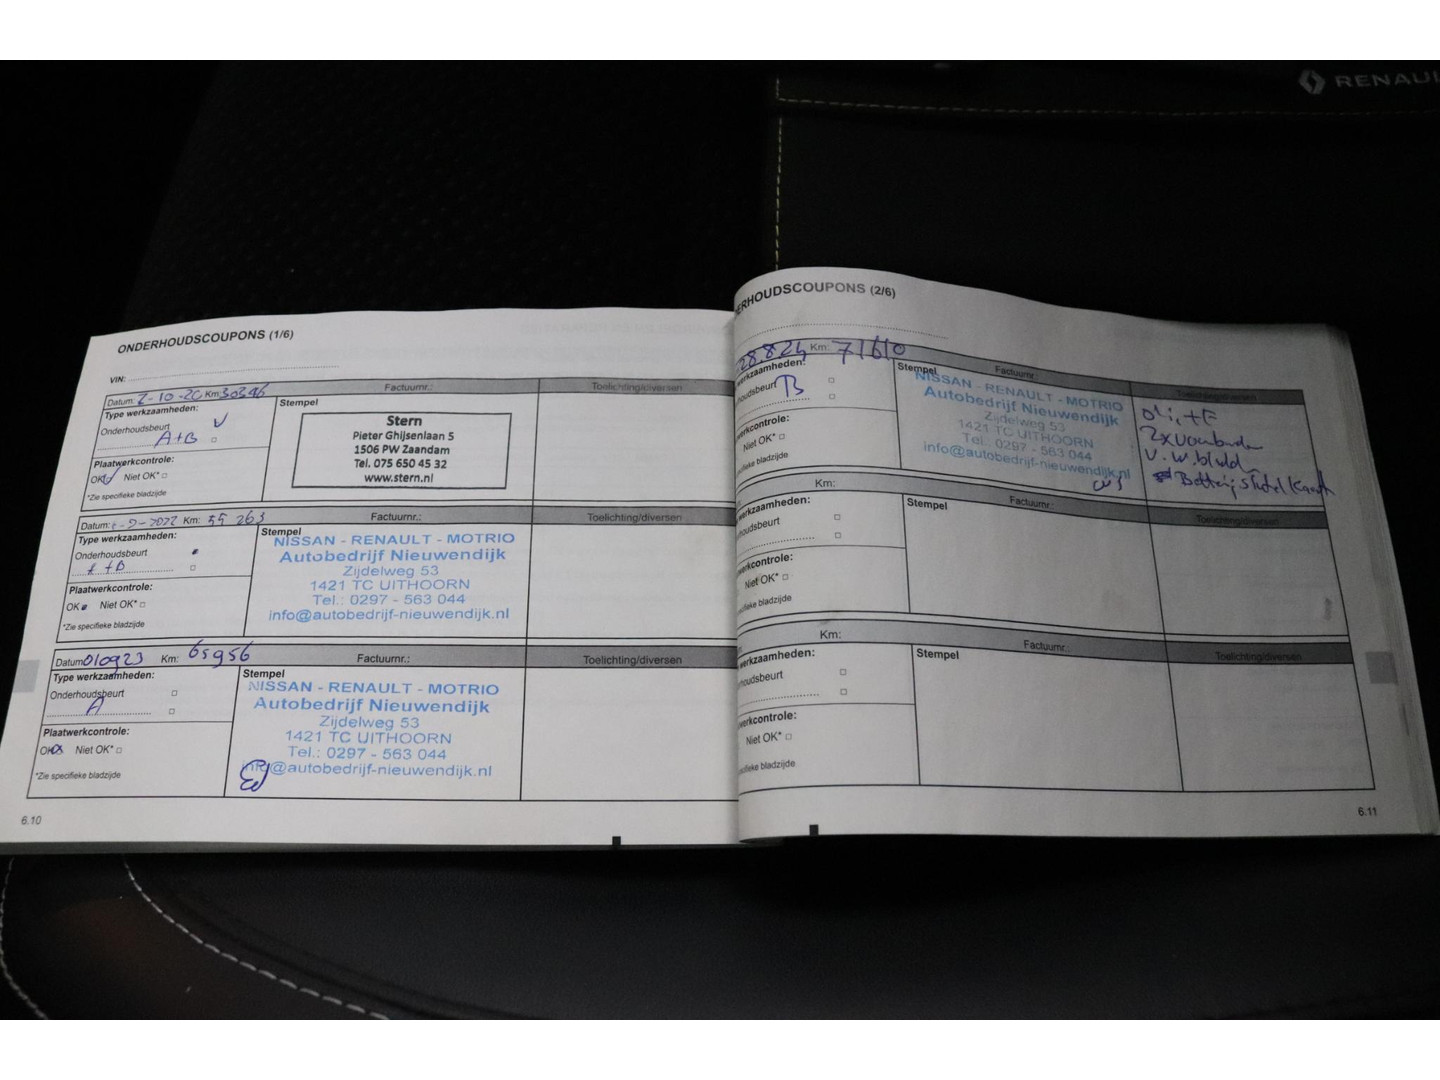 RENAUL
ONDERHOUDSCOUPONS (1/6)
VIN:
Datum: 2-10-20 Km 30396 Factuurnr.: Toelichting/diversen
Type werkzaamheden:
Onderhoudsbeurt
A+B
Plaatwerkcontrole:
OK Niet OK*
*Zie specifieke bladzijde
Stempel
Stern
Pieter Ghijsenlaan 5
1506 PW Zaandam
Tel. 075 650 45 32
www.stern.nl
Datum: -9-2022 Km: 55 263 Factuurnr.: Toelichting/diversen
Type werkzaamheden:
Onderhoudsbeurt
A+B
Plaatwerkcontrole:
OK Niet OK*
*Zie specifieke bladzijde
Stempel
NISSAN - RENAULT - MOTRIO
Autobedrijf Nieuwendijk
Zijdelweg 53
1421 TC UITHOORN
Tel.: 0297 - 563 044
info@autobedrijf-nieuwendijk.nl
Datum 010923 Km: 65956 Factuurnr.: Toelichting/diversen
Type werkzaamheden:
Onderhoudsbeurt
A
Plaatwerkcontrole:
OK Niet OK*
*Zie specifieke bladzijde
Stempel
NISSAN - RENAULT - MOTRIO
Autobedrijf Nieuwendijk
Zijdelweg 53
1421 TC UITHOORN
Tel.: 0297 - 563 044
info@autobedrijf-nieuwendijk.nl
6.10
ERHOUDSCOUPONS (2/6)
28.8.24 Km: 71610 Factuurnr.: Toelichting/diversen
erkzaamheden:
houdsbeurt B
werkcontrole:
Niet OK*
specifieke bladzijde
Stempel
NISSAN - RENAULT - MOTRIO
Autobedrijf Nieuwendijk
Zijdelweg 53
1421 TC UITHOORN
Tel.: 0297 - 563 044
info@autobedrijf-nieuwendijk.nl
2x
Km: Factuurnr.: Toelichting/diversen
erkzaamheden:
houdsbeurt
werkcontrole:
Niet OK*
specifieke bladzijde
Stempel
Km: Factuurnr.: Toelichting/diversen
erkzaamheden:
houdsbeurt
werkcontrole:
Niet OK*
specifieke bladzijde
Stempel
6.11